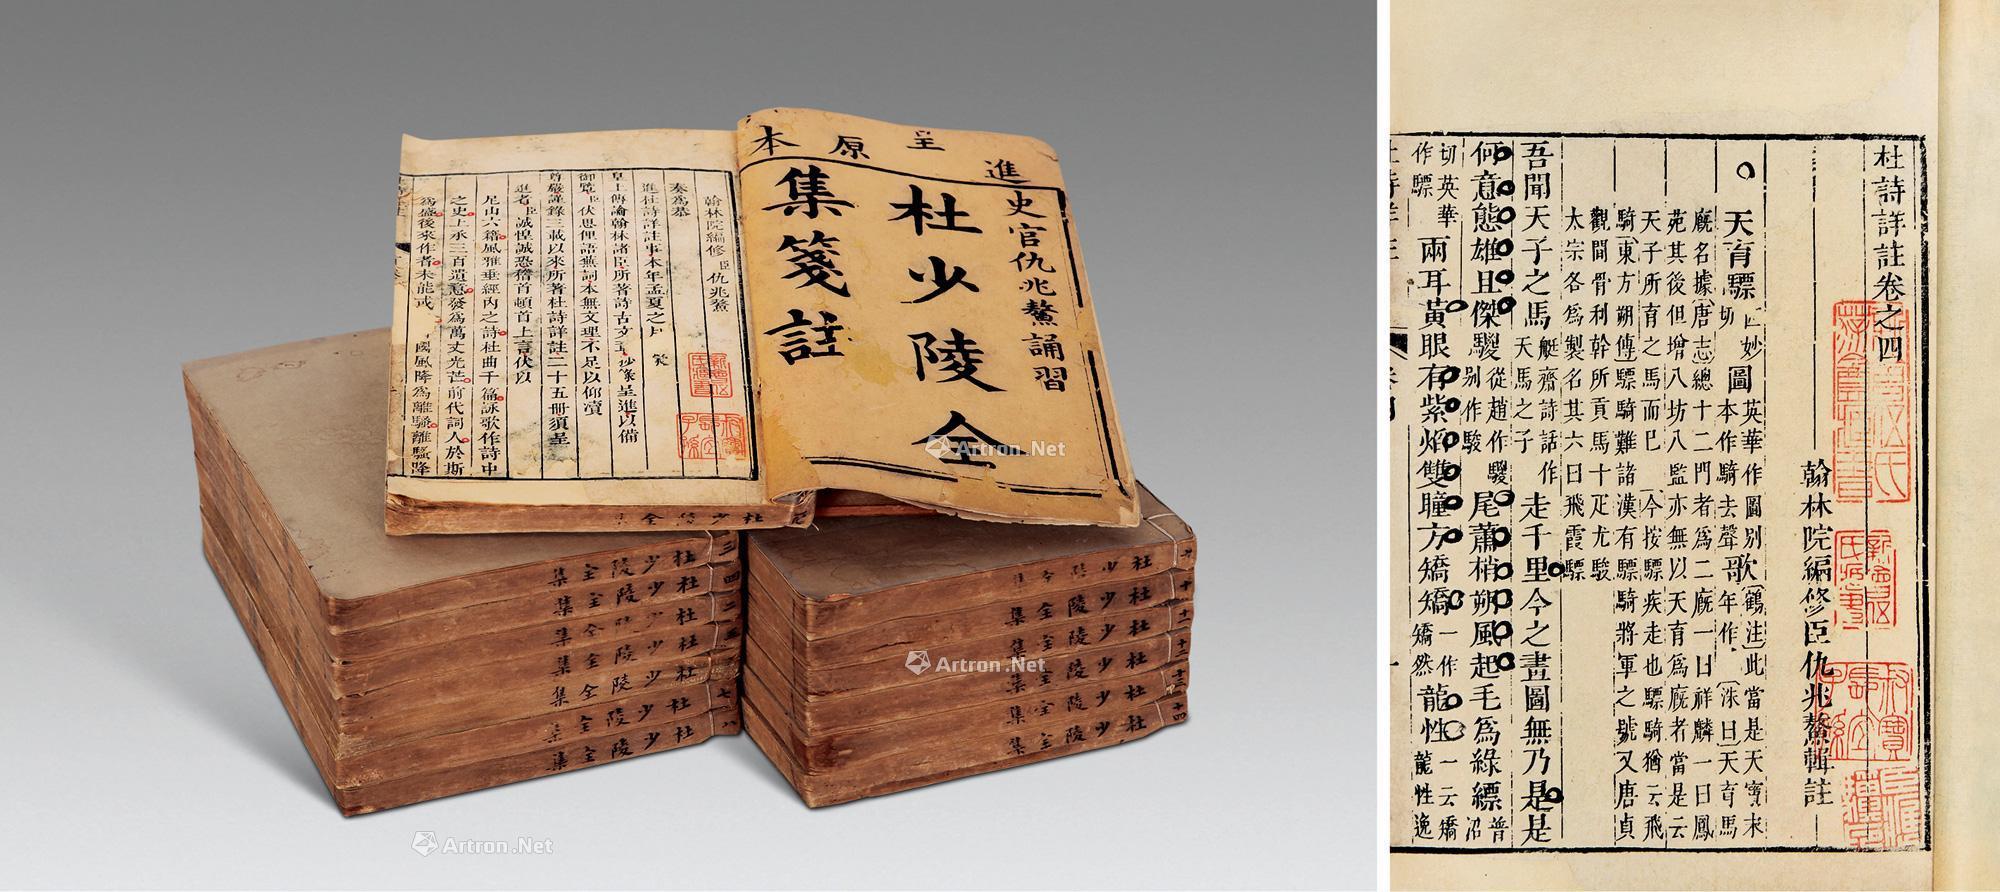 進呈原本
史官仇兆鰲誦習
杜少陵全
集箋註
翰林院編修臣仇兆鰲
奏為恭
進杜詩詳註事本年孟夏之月
皇上傳諭翰林諸臣所著詩古文
呈進以備
御覽臣伏思俚語蕪詞本無文理不足以仰瀆
尊嚴謹錄三載以來所著杜詩詳註二十五冊須呈
進者臣誠惶誠恐稽首頓首上言伏以
尼山六籍風雅垂經內之詩杜曲千篇詠歌作詩中
之史上承三百遺意發為萬丈光芒前代詞人於斯
為盛後來作者未能或
國風降為離騷離騷降
杜少陵全集
三
杜少陵全集
四
杜少陵全集
二
杜少陵全集
杜少陵全集
杜少陵全集
七
杜少陵全集
八
杜少陵全集
杜少陵全集
十
杜少陵全集
十一
杜少陵全集
十二
杜少陵全集
十三
杜少陵全集
十四
Artron.Net
Artron.Net
Artron.Net
杜詩詳註卷之四
翰林院編修臣仇兆鰲輯註
天育驃
妙圖
英華作圖別
本作騎去聲
歌
鶴注此當是天寶末
年作
洙曰天育馬
廐名據唐志總十二門者為二廐一曰祥麟一曰鳳
苑其後但增八坊八監亦無以天育為廐者當是云
天子所育之馬而已
今按驃疾走也驃騎猶云飛
騎東方朔傳驃騎難諸漢有驃騎將軍之號又唐貞
觀間骨利幹所貢馬十疋尤駿
太宗各為製名其六曰飛霞驃
吾聞天子之馬
艇齋詩話作
天馬之子
走千里今之畫圖無乃是是
何意態雄且傑駿
從趙作駿
別作駿
尾蕭梢朔風起毛為綠縹
普沼
切英華
作驃
兩耳黃眼有紫焰雙瞳方矯矯
一作
矯然
龍性
一云矯
龍性逸